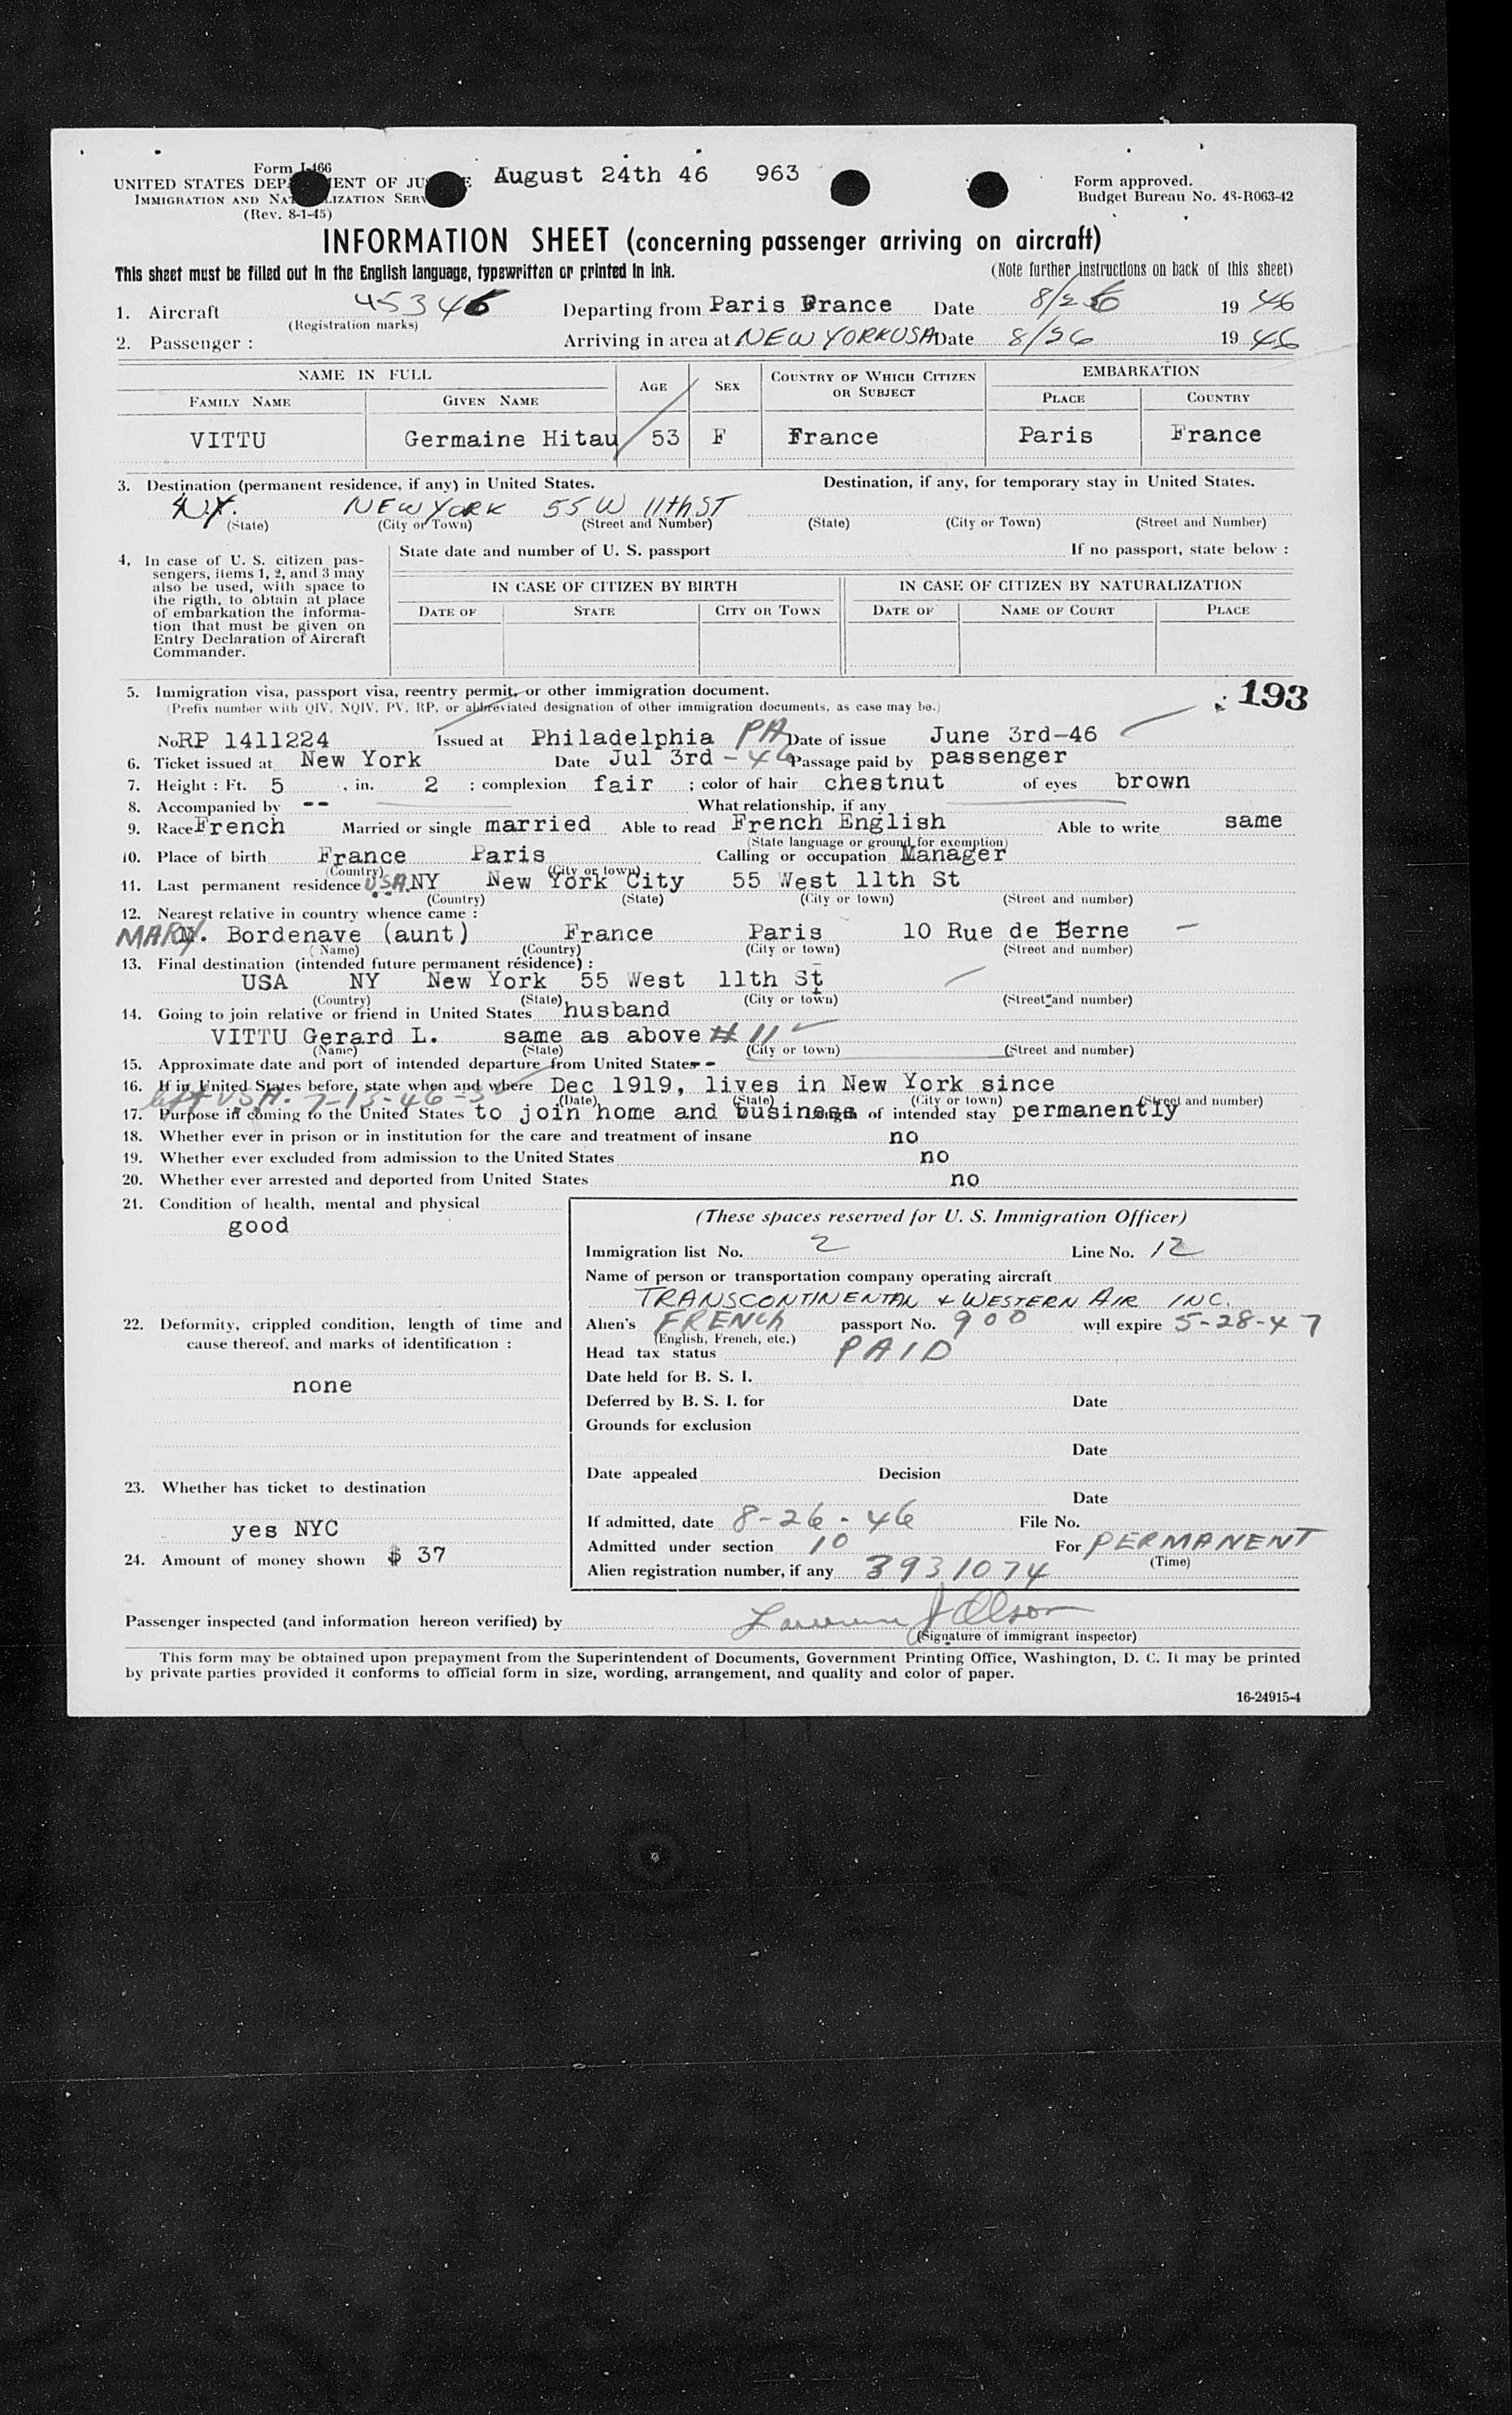 Form I-466
UNITED STATES DEPARTMENT OF JUSTICE August 24th 46 963 Form approved.
IMMIGRATION AND NATURALIZATION SERVICE Budget Bureau No. 43-R063-42
(Rev. 8-1-45)
INFORMATION SHEET (concerning passenger arriving on aircraft)
This sheet must be filled out in the English language, typewritten or printed in ink. (Note further instructions on back of this sheet)
1. Aircraft 45346 Departing from Paris France Date 8/26 19 46
(Registration marks)
2. Passenger : Arriving in area at NEW YORK USA Date 8/26 19 46
NAME IN FULL AGE SEX COUNTRY OF WHICH CITIZEN OR SUBJECT EMBARKATION
FAMILY NAME GIVEN NAME PLACE COUNTRY
VITTU Germaine Hitau 53 F France Paris France
3. Destination (permanent residence, if any) in United States. Destination, if any, for temporary stay in United States.
N.Y. NEW YORK 55 W 11th ST
(State) (City or Town) (Street and Number) (State) (City or Town) (Street and Number)
4. In case of U. S. citizen pas- State date and number of U. S. passport If no passport, state below :
sengers, items 1, 2, and 3 may
also be used, with space to IN CASE OF CITIZEN BY BIRTH IN CASE OF CITIZEN BY NATURALIZATION
the rigth, to obtain at place
of embarkation the informa- DATE OF STATE CITY OR TOWN DATE OF NAME OF COURT PLACE
tion that must be given on
Entry Declaration of Aircraft
Commander.
5. Immigration visa, passport visa, reentry permit, or other immigration document. 193
(Prefix number with QIV, NQIV, PV, RP, or abbreviated designation of other immigration documents, as case may be.)
No RP 1411224 Issued at Philadelphia PA Date of issue June 3rd-46
6. Ticket issued at New York Date Jul 3rd - 46 Passage paid by passenger
7. Height : Ft. 5 , in. 2 ; complexion fair ; color of hair chestnut of eyes brown
8. Accompanied by -- What relationship, if any
9. Race French Married or single married Able to read French English Able to write same
(State language or ground for exemption)
10. Place of birth France Paris Calling or occupation Manager
(Country) (City or town)
11. Last permanent residence USA. NY New York City 55 West 11th St
(Country) (State) (City or town) (Street and number)
12. Nearest relative in country whence came :
MARY M. Bordenave (aunt) France Paris 10 Rue de Berne
(Name) (Country) (City or town) (Street and number)
13. Final destination (intended future permanent résidence) :
USA NY New York 55 West 11th St
(Country) (State) (City or town) (Street and number)
14. Going to join relative or friend in United States husband
VITTU Gerard L. same as above # 11
(Name) (State) (City or town) (Street and number)
15. Approximate date and port of intended departure from United States --
16. If in United States before, state when and where Dec 1919, lives in New York since
left USA. 7-13-46 (Date) (State) (City or town) (Street and number)
17. Purpose in coming to the United States to join home and business Length of intended stay permanently
18. Whether ever in prison or in institution for the care and treatment of insane no
19. Whether ever excluded from admission to the United States no
20. Whether ever arrested and deported from United States no
21. Condition of health, mental and physical
good
22. Deformity, crippled condition, length of time and
cause thereof, and marks of identification :
none
23. Whether has ticket to destination
yes NYC
24. Amount of money shown $ 37
(These spaces reserved for U. S. Immigration Officer)
Immigration list No. 2 Line No. 12
Name of person or transportation company operating aircraft
TRANSCONTINENTAL & WESTERN AIR INC.
Alien's FRENCH passport No. 900 will expire 5-28-47
(English, French, etc.)
Head tax status PAID
Date held for B. S. I.
Deferred by B. S. I. for Date
Grounds for exclusion
Date
Date appealed Decision
Date
If admitted, date 8-26-46 File No.
Admitted under section 10 For PERMANENT
(Time)
Alien registration number, if any 3931074
Passenger inspected (and information hereon verified) by Lawrence J Olson
(Signature of immigrant inspector)
This form may be obtained upon prepayment from the Superintendent of Documents, Government Printing Office, Washington, D. C. It may be printed
by private parties provided it conforms to official form in size, wording, arrangement, and quality and color of paper.
16-24915-4